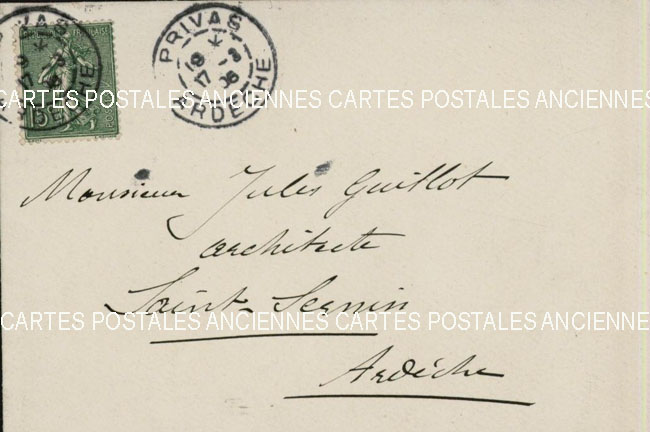 PRIVAS
ARDECHE
PRIVAS
ARDECHE
CARTES POSTALES ANCIENNES CARTES POSTALES ANCIENNES
Monsieur Jules Guillot
architecte
Saint-Sernin
CARTES POSTALES ANCIENNES CARTES POSTALES ANCIENNE
Ardèche